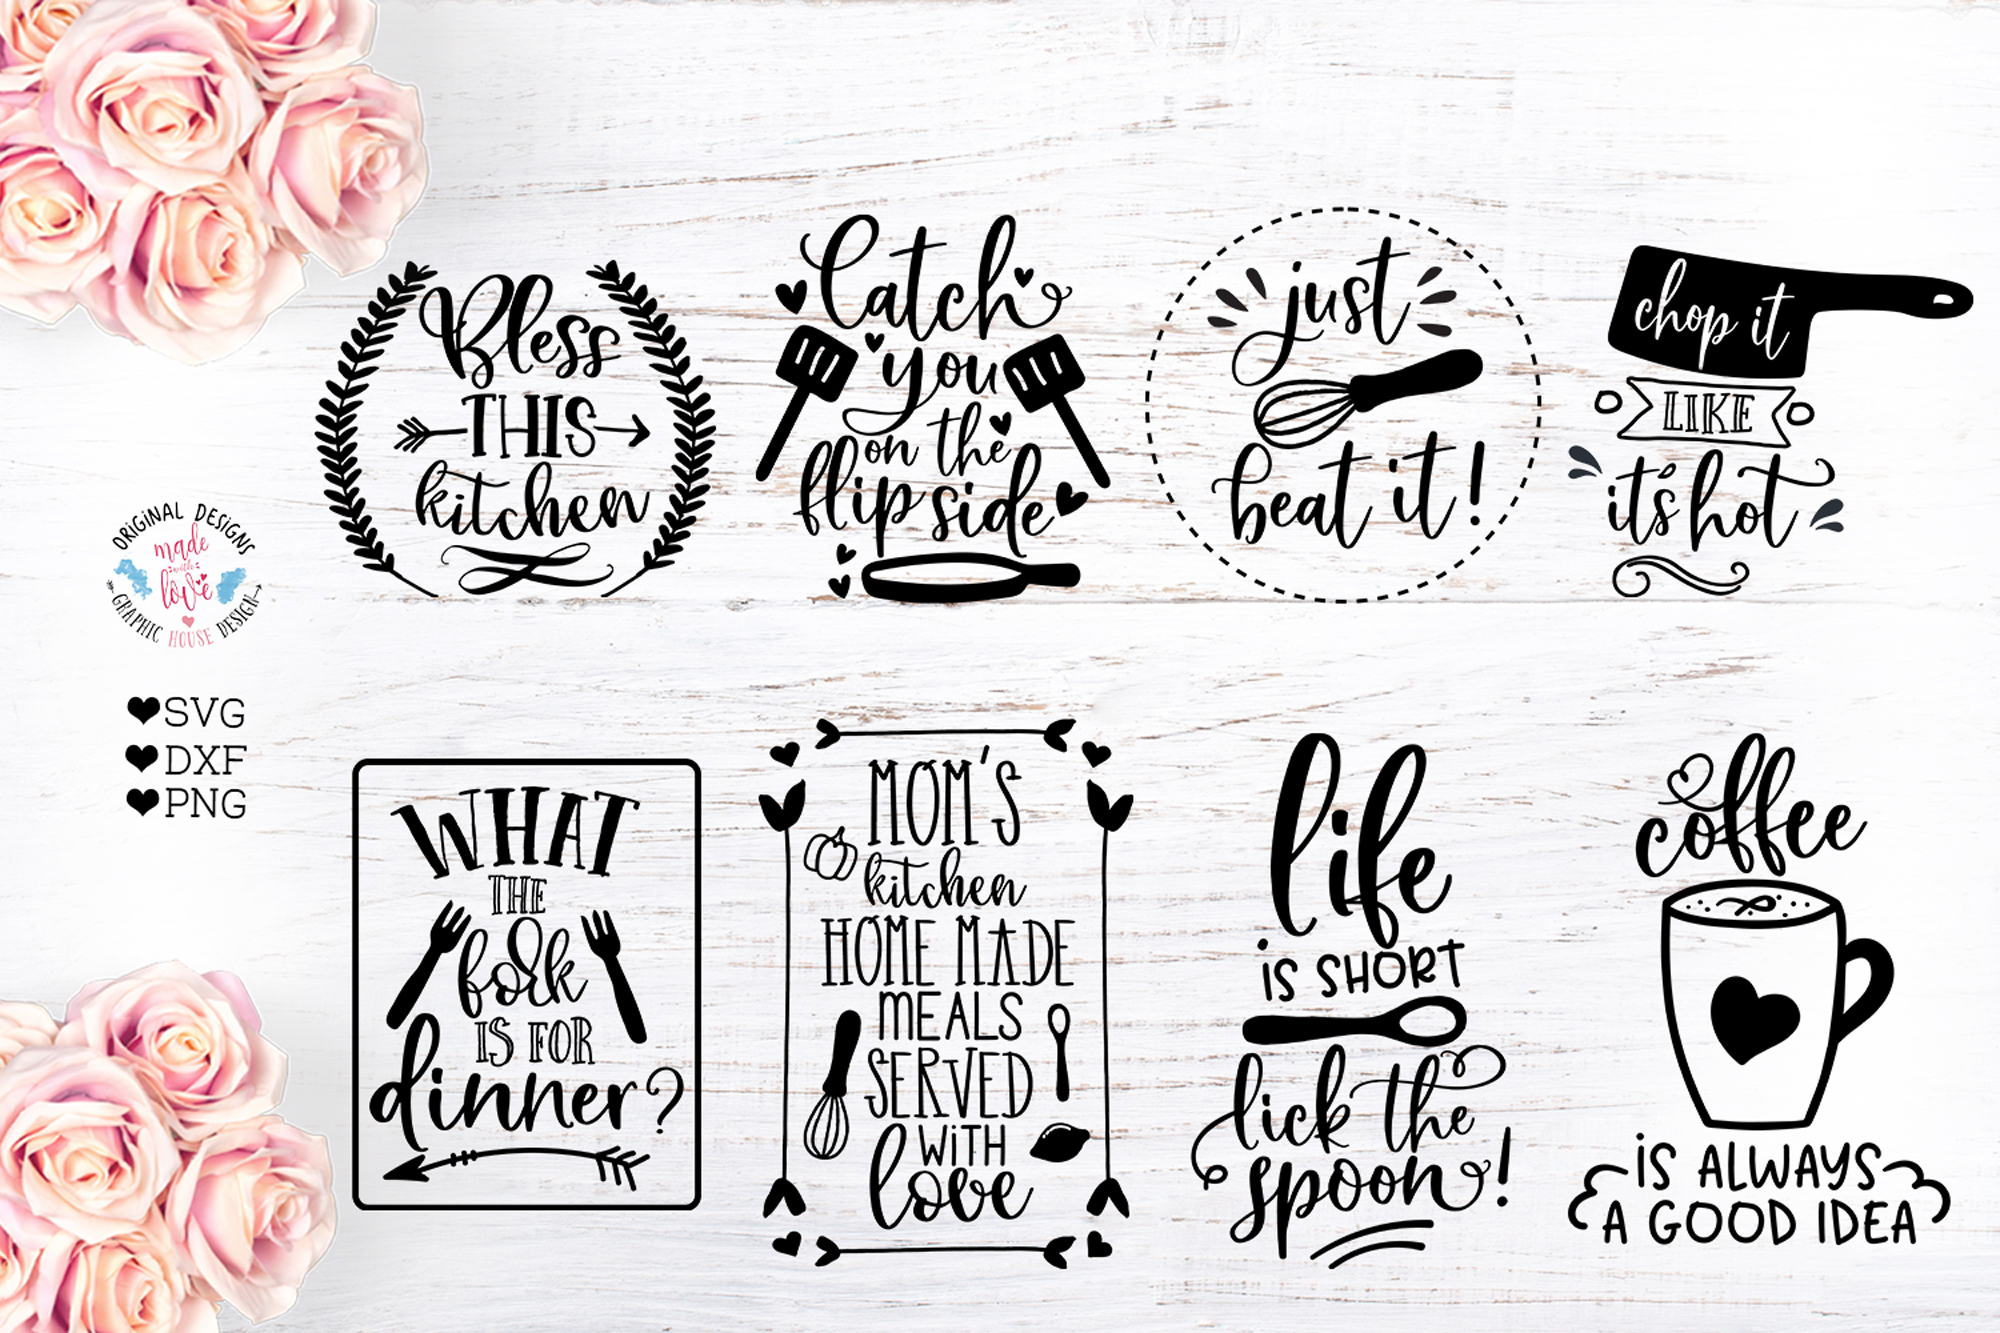 Bless
THIS
kitchen
Catch
you
on the
flip side
just
beat it!
chop it
LIKE
it's hot
ORIGINAL DESIGNS
made
with
love
GRAPHIC HOUSE DESIGN
SVG
DXF
PNG
WHAT
THE
fork
IS FOR
dinner?
MOM'S
kitchen
HOME MADE
MEALS
SERVED
WITH
love
life
IS SHORT
lick the
spoon!
coffee
IS ALWAYS
A GOOD IDEA